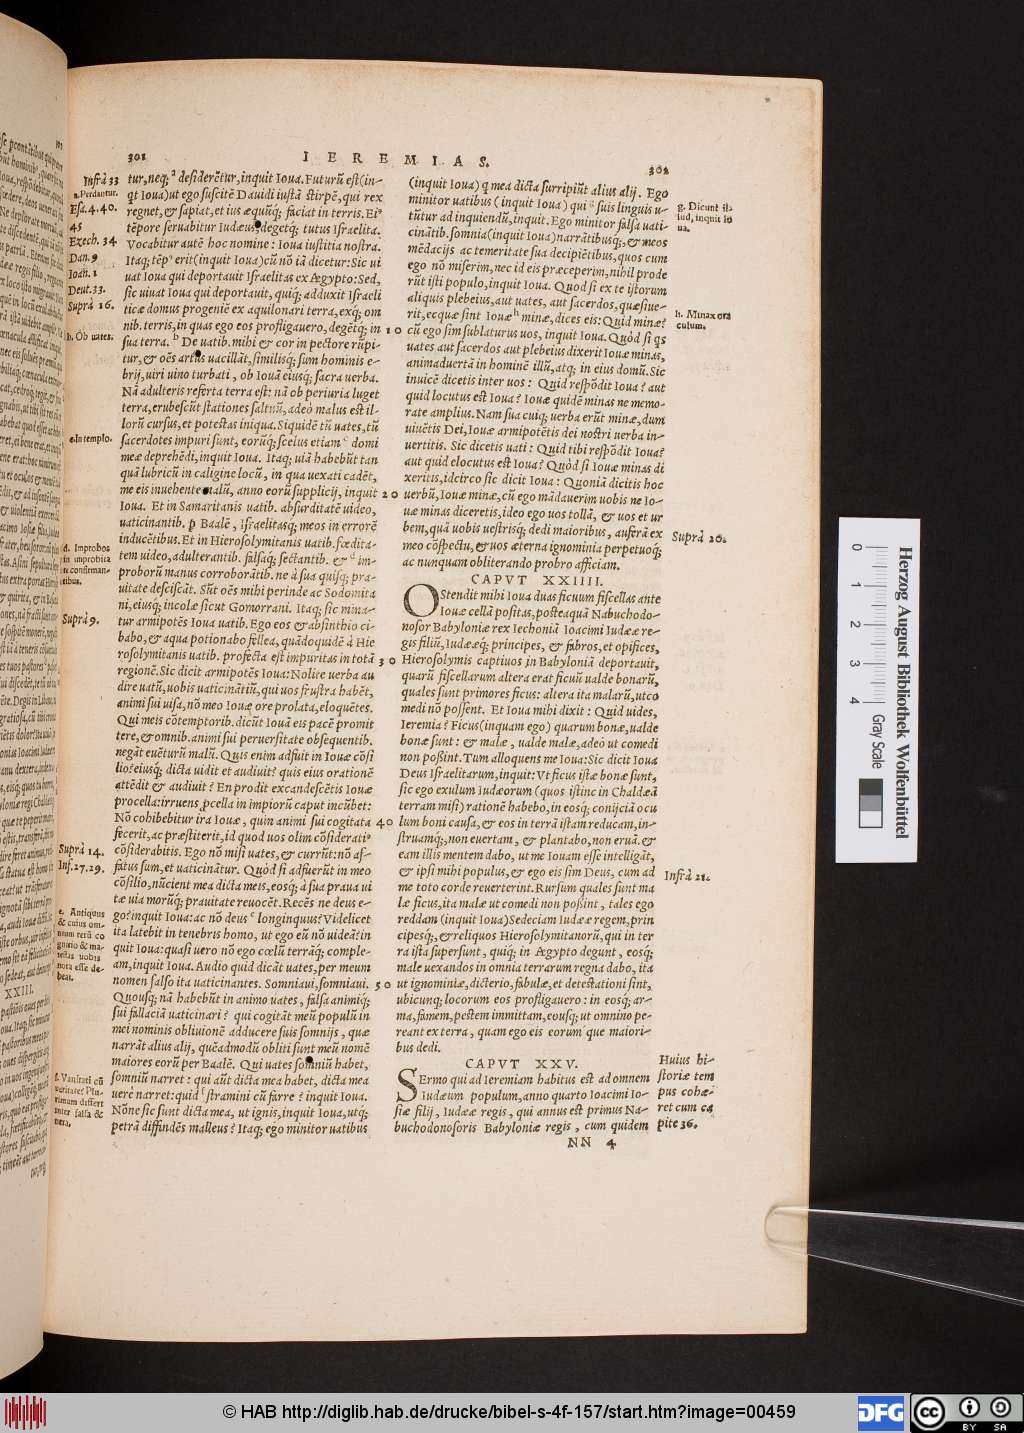 301
IEREMIAS.
302
tur,neq;ᵃ desiderētur,inquit Ioua.Futurū est(in-
qt Ioua)ut ego suscitē Dauidi iustā stirpē,qui rex
regnet,& sapiat,et ius æquūq; faciat in terris.Ei⁹
tēpore seruabitur Iudæus,degetq; tutus Israelita.
Vocabitur autē hoc nomine : Ioua iustitia nostra.
Itaq; tēp⁹ erit(inquit Ioua)cū nō iā dicetur:Sic ui
uat Ioua qui deportauit Israelitas ex Ægypto:Sed,
sic uiuat Ioua qui deportauit, quiq; adduxit Israeli
ticæ domus progeniē ex aquilonari terra,exq; om
nib.terris,in quas ego eos profligauero,degētq; in
sua terra. ᵇ De uatib.mihi & cor in pectore rūpi-
tur,& oēs artus uacillāt,similisq; sum hominis e-
brij,uiri uino turbati , ob Iouā eiusq; sacra uerba.
Nā adulteris referta terra est: nā ob periuria luget
terra,erubescūt stationes saltuū,adeò malus est il-
lorū cursus,et potestas iniqua.Siquidē tū uates,tū
sacerdotes impuri sunt, eorūq; scelus etiamᶜ domi
meæ deprehēdi,inquit Ioua. Itaq; uiā habebūt tan
quā lubricū in caligine locū , in qua uexati cadēt,
me eis inuehente malū, anno eorū supplicij, inquit
Ioua. Et in Samaritanis uatib. absurditatē uideo,
uaticinantib. p Baalē , israelitasq; meos in errorē
inducētibus.Et in Hierosolymitanis uatib.fœdita-
tem uideo,adulterantib. falsaq; sectantib. &ᵈ im-
proborū manus corroborātib.ne à sua quisq; pra-
uitate desciscāt. Sūt oēs mihi perinde ac Sodomita
ni,eiusq; incolæ sicut Gomorrani. Itaq; sic mina-
tur armipotēs Ioua uatib.Ego eos & absinthio ci-
babo,& aqua potionabo fellea,quādoquidē à Hie
rosolymitanis uatib. profecta est impuritas in totā
regionē.Sic dicit armipotēs Ioua:Nolite uerba au
dire uatū,uobis uaticinātiū,qui uos frustra habēt,
animi sui uisa,nō meo Iouæ ore prolata,eloquētes.
Qui meis cōtemptorib.dicūt Iouā eis pacē promit
tere,&omnib.animi sui peruersitate obsequentib.
negāt euēturū malū. Quis enim adfuit in Iouæ cōsi
lio?eiusq; dicta uidit et audiuit? quis eius orationē
attēdit & audiuit ? En prodit excandescētis Iouæ
procella:irruens pcella in impiorū caput incūbet:
Nō cohibebitur ira Iouæ , quin animi sui cogitata
fecerit,ac præstiterit,id quod uos olim cōsiderati⁹
cōsiderabitis. Ego nō misi uates,& currūt:nō af-
fatus sum,et uaticinātur. Quòd si adfuerūt in meo
cōsilio,nūcient mea dicta meis,eosq; à sua praua ui
tæ uia morūq; prauitate reuocēt.Recēs ne deus e-
go?inquit Ioua:ac nō deusᵉ longinquus?Videlicet
ita latebit in tenebris homo, ut ego eū nō uideā?in
quit Ioua:quasi uero nō ego cœlū terrāq; comple-
am,inquit Ioua.Audio quid dicāt uates,per meum
nomen falso ita uaticinantes. Somniaui,somniaui.
Quousq; nā habebūt in animo uates , falsa animiq;
sui fallaciā uaticinari ? qui cogitāt meū populū in
mei nominis obliuionē adducere suis somnijs , quæ
narrāt alius alij, quēadmodū obliti sunt meū nomē
maiores eorū per Baalē. Qui uates somniū habet,
somniū narret : qui aūt dicta mea habet, dicta mea
uerè narret:quidᶠ stramini cū farre ? inquit Ioua.
Nōne sic sunt dicta mea, ut ignis,inquit Ioua,utq;
petrā diffindēs malleus? Itaq; ego minitor uatibus
Infrà 33
a.Perdantur.
Esa.4.40.
45
Ezech. 34
Dan.9
Ioan.1
Deut.33.
Suprà 16.
b. Ob uates.
c.In templo.
d. Improbos
in improbita
te confirman-
tibus.
Suprà 9.
Suprà 14.
Inf.27.29.
e. Antiquus
& cuius om-
nium rerū co
gnitio & ma-
iestas uobis
nota esse de-
beat.
f. Vanitati cū
ueritate? Plu-
rimum differt
inter falsa &
uera.
10
20
30
40
50
(inquit Ioua) q mea dicta surripiūt alius alij. Ego
minitor uatibus ( inquit Ioua ) qui ᵍ suis linguis u-
tūtur ad inquiendū,inquit.Ego minitor falsa uati-
cinātib.somnia(inquit Ioua)narrātibusq;,& meos
mēdacijs ac temeritate sua decipiētibus,quos cum
ego nō miserim,nec id eis præceperim,nihil prode
rūt isti populo,inquit Ioua. Quod si ex te istorum
aliquis plebeius,aut uates, aut sacerdos,quæsiue-
rit,ecquæ sint Iouæʰ minæ,dices eis:Quid minæ?
cū ego sim sublaturus uos, inquit Ioua.Quòd si qs
uates aut sacerdos aut plebeius dixerit Iouæ minas,
animaduertā in hominē illū,atq; in eius domū.Sic
inuicē dicetis inter uos : Quid respōdit Ioua ? aut
quid locutus est Ioua ? Iouæ quidē minas ne memo-
rate amplius.Nam sua cuiq; uerba erūt minæ,dum
uiuētis Dei,Iouæ armipotētis dei nostri uerba in-
uertitis. Sic dicetis uati : Quid tibi respōdit Ioua?
aut quid elocutus est Ioua? Quòd si Iouæ minas di
xeritis,idcirco sic dicit Ioua : Quoniā dicitis hoc
uerbū,Iouæ minæ,cū ego mādauerim uobis ne Io-
uæ minas diceretis,ideo ego uos tollā, & uos et ur
bem,quā uobis uestrisq; dedi maioribus , auferā ex
meo cōspectu,&uos æterna ignominia perpetuoq;
ac nunquam obliterando probro afficiam.
CAPVT XXIIII.
OStendit mihi Ioua duas ficuum fiscellas ante
Iouæ cellā positas,posteaquā Nabuchodo-
nosor Babyloniæ rex Iechoniā Ioacimi Iudææ re-
gis filiū,Iudææq; principes, & fabros,et opifices,
Hierosolymis captiuos in Babyloniā deportauit,
quarū fiscellarum altera erat ficuū ualde bonarū,
quales sunt primores ficus: altera ita malarū,ut co
medi nō possent. Et Ioua mihi dixit : Quid uides,
Ieremia ? Ficus(inquam ego) quarum bonæ,ualde
bonæ sunt : & malæ , ualde malæ,adeò ut comedi
non possint.Tum alloquens me Ioua:Sic dicit Ioua
Deus Israelitarum,inquit:Vt ficus istæ bonæ sunt,
sic ego exulum Iudæorum (quos istinc in Chaldæā
terram misi) rationē habebo,in eosq; conijciā ocu
lum boni causa,& eos in terrā istam reducam,in-
struamq;,non euertam , & plantabo,non eruā.&
eam illis mentem dabo, ut me Iouam esse intelligāt,
& ipsi mihi populus,& ego eis sim Deus, cum ad
me toto corde reuerterint.Rursum quales sunt ma
læ ficus,ita malæ ut comedi non possint , tales ego
reddam (inquit Ioua)Sedeciam Iudææ regem,prin
cipesq;,&reliquos Hierosolymitanorū,qui in ter
ra ista supersunt , quiq; in Ægypto degunt , eosq;
male uexandos in omnia terrarum regna dabo, ita
ut ignominiæ,dicterio,fabulæ,et detestationi sint,
ubicunq; locorum eos profligauero : in eosq; ar-
ma,famem,pestem immittam,eousq; ut omnino pe-
reant ex terra , quam ego eis eorum que maiori-
bus dedi.
CAPVT XXV.
SErmo qui ad Ieremiam habitus est ad omnem
Iudæum populum,anno quarto Ioacimi Io-
siæ filij, Iudææ regis , qui annus est primus Na-
buchodonosoris Babyloniæ regis , cum quidem
NN 4
g. Dicunt il-
lud, inquit Io
ua.
h. Minax ora
culum.
Suprà 20.
Infrà 21.
Huius hi-
storiæ tem
pus cohæ-
ret cum ca
pite 36.
0 1 2 3 4
Gray Scale
Herzog August Bibliothek Wolfenbüttel
© HAB http://diglib.hab.de/drucke/bibel-s-4f-157/start.htm?image=00459
DFG
cc
BY SA